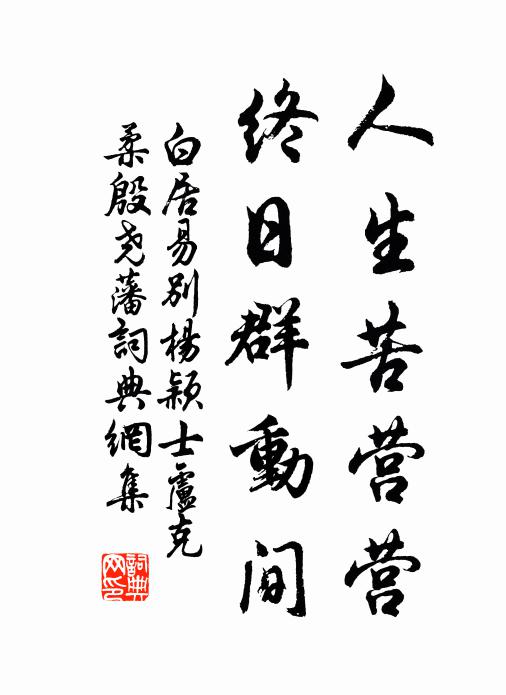 人生苦营营
终日群動间
白居易别楊颖士盧克
柔殷尧藩詞典網集
詞典网印